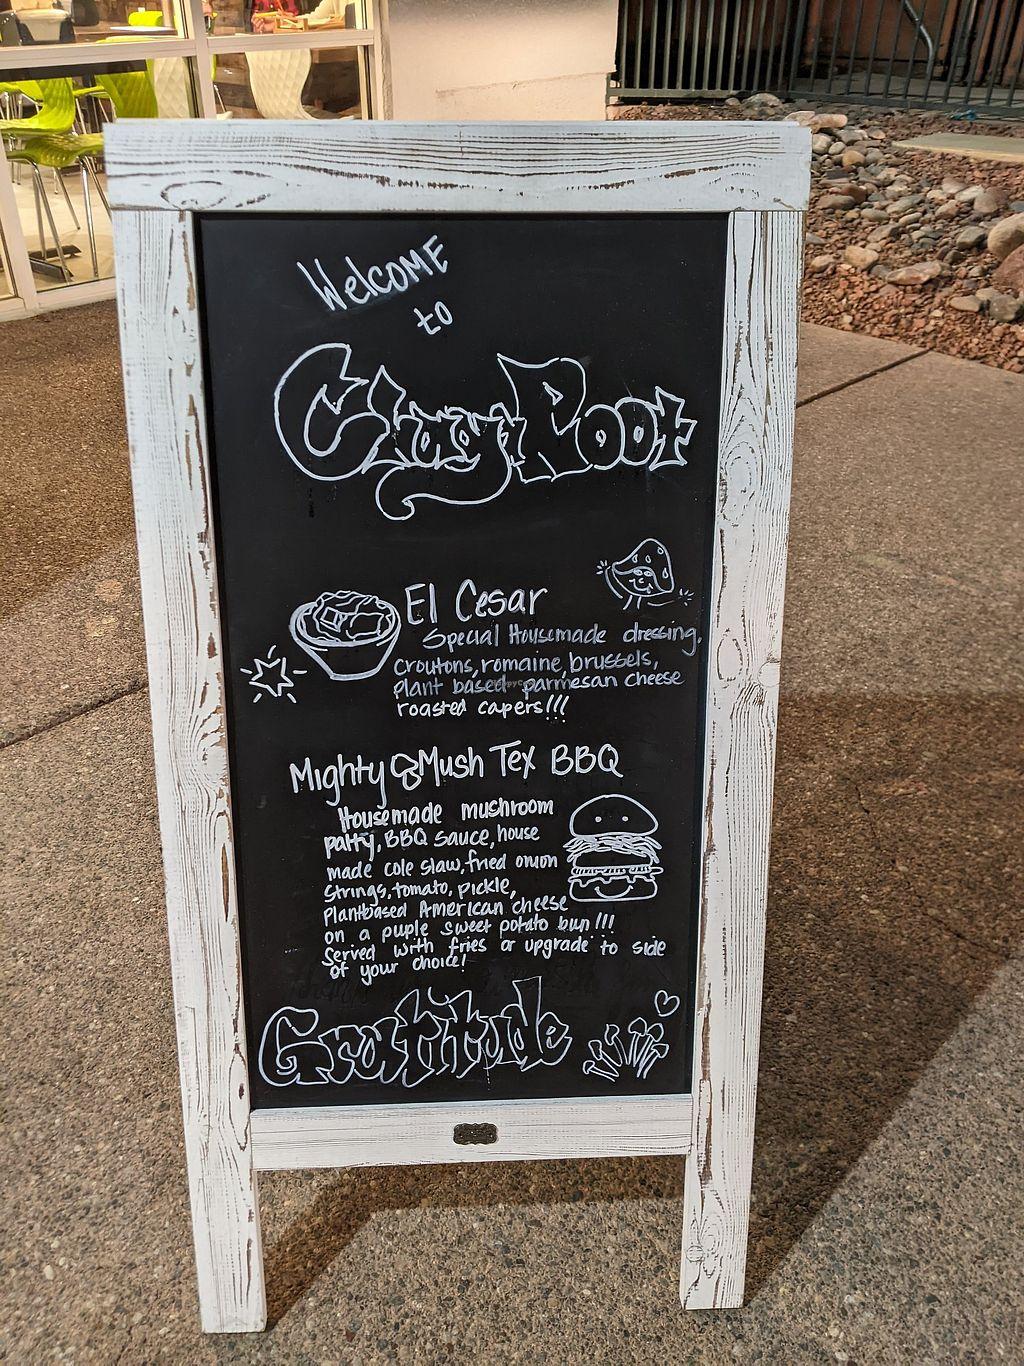 WelcoME
to
ChayRoot
El Cesar
Special Housemade dressing,
croutons, romaine, brussels,
plant based parmesan cheese
roasted capers!!!
Mighty Mush Tex BBQ
Housemade mushroom
patty, BBQ sauce, house
made cole slaw, fried onion
strings, tomato, pickle,
Plantbased American cheese
on a puple sweet potato bun!!!
Served with fries or upgrade to side
of your choice!
Gratitude